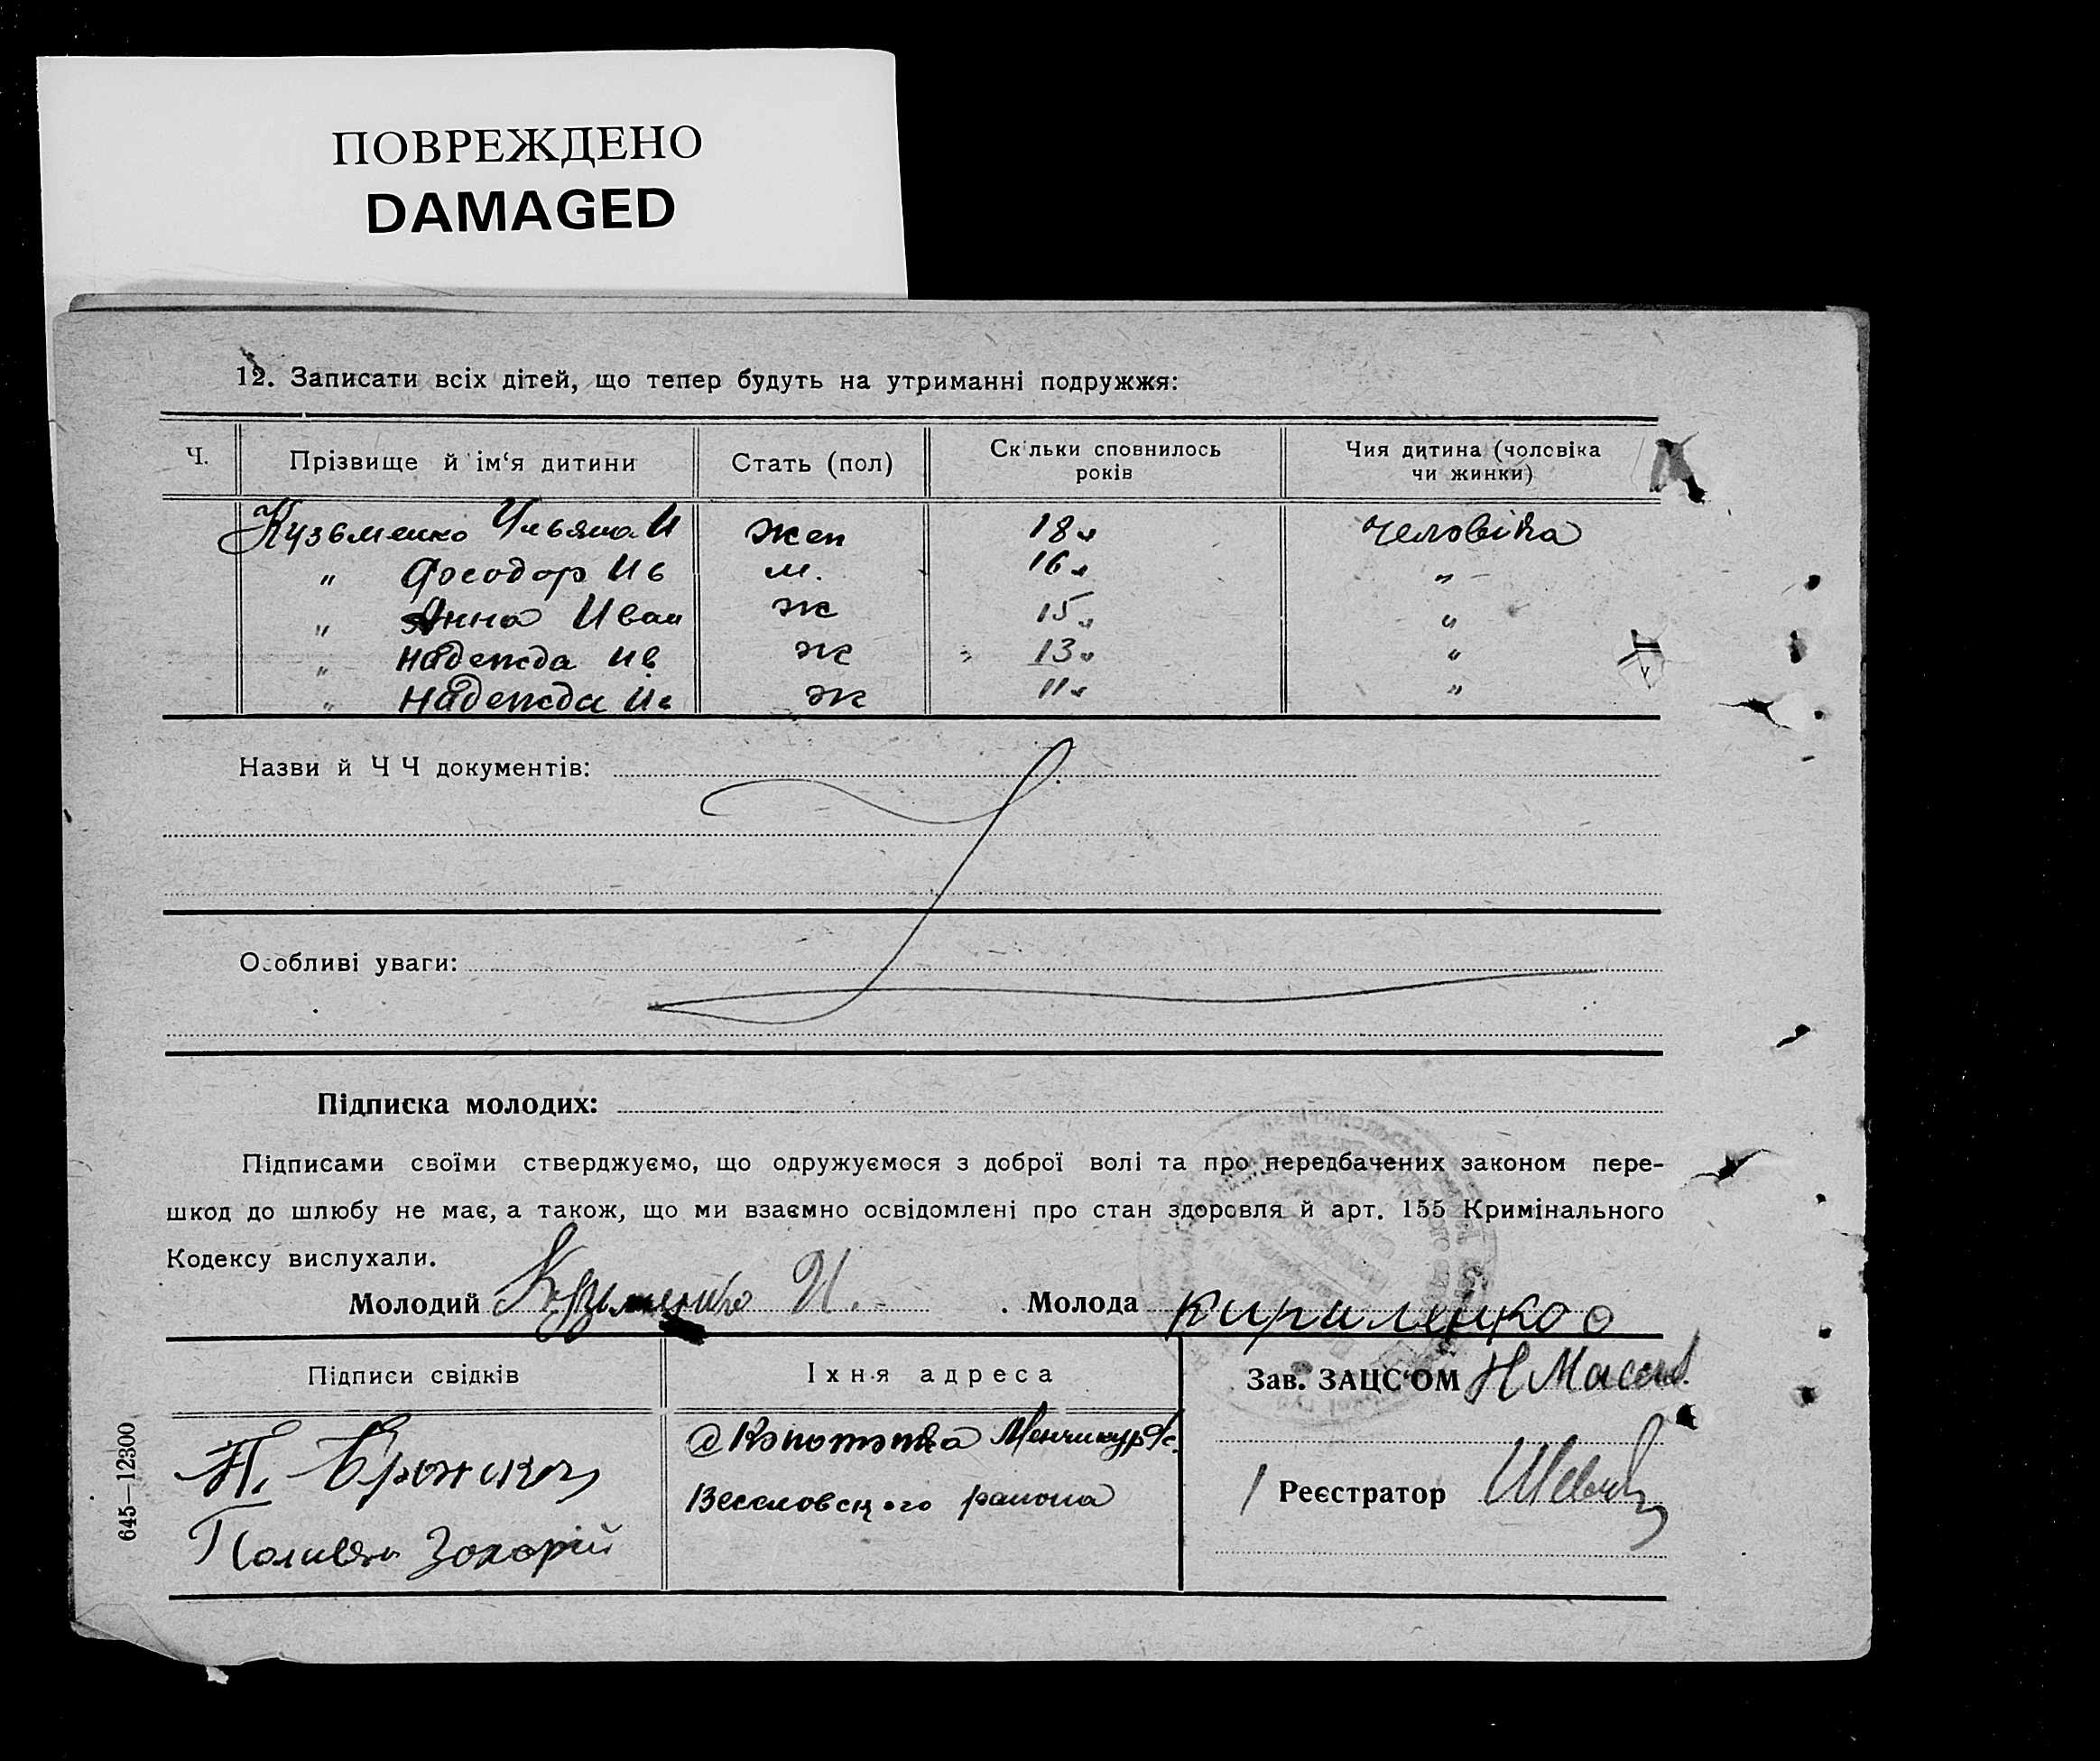 ПОВРЕЖДЕНО
DAMAGED
12. Записати всіх дітей, що тепер будуть на утриманні подружжя:
Ч. Прізвище й ім‘я дитини Стать (пол) Скільки сповнилось років Чия дитина (чоловіка чи жинки)
Кузьменко Ульяна И жен 18 л человіка
" Феодор Ив м. 16 л "
" Анна Иван ж 15 л "
" Надежда Ив ж 13 л "
" Надежда Ив ж 11 л "
Назви й Ч Ч документів:
Особливі уваги:
Підписка молодих:
Підписами своїми стверджуємо, що одружуємося з доброї волі та про передбачених законом пере-
шкод до шлюбу не має, а також, що ми взаємно освідомлені про стан здоровля й арт. 155 Кримінального
Кодексу вислухали.
Молодий Кузьменко И. Молода кириленко
Підписи свідків Їхня адреса Зав. ЗАЦС‘ОМ Н
П.
Веселовского района
Реєстратор
Захорій
645—12300